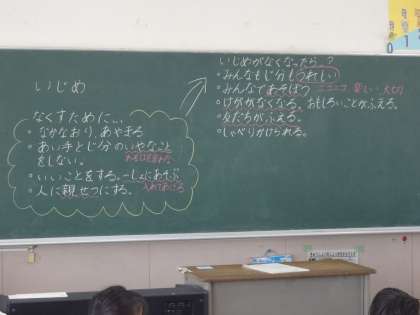 いじめ
なくすために…
・なかなおり、あやまる
・あい手とじ分のいやなこと
をしない。
・いいことをする。いっしょにあそぶ
入れてあげる
・人に親せつにする。
いじめがなくなったら…?
・みんなもじ分もうれしい
・みんなであそぼう ニコニコ 楽しい 大切
・けががなくなる。おもしろいことがふえる。
・友だちがふえる。
・しゃべりかけられる。
0
1